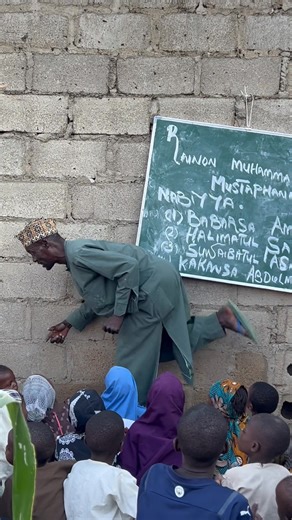 RAINON MUHAMMA
MUSTAPHANA
NABIYYA.
(1) BABARSA AM
(2) HALIMATUL SA
(3) SUNSAIBATUL ASA
(4) KAKANSA ABDULM